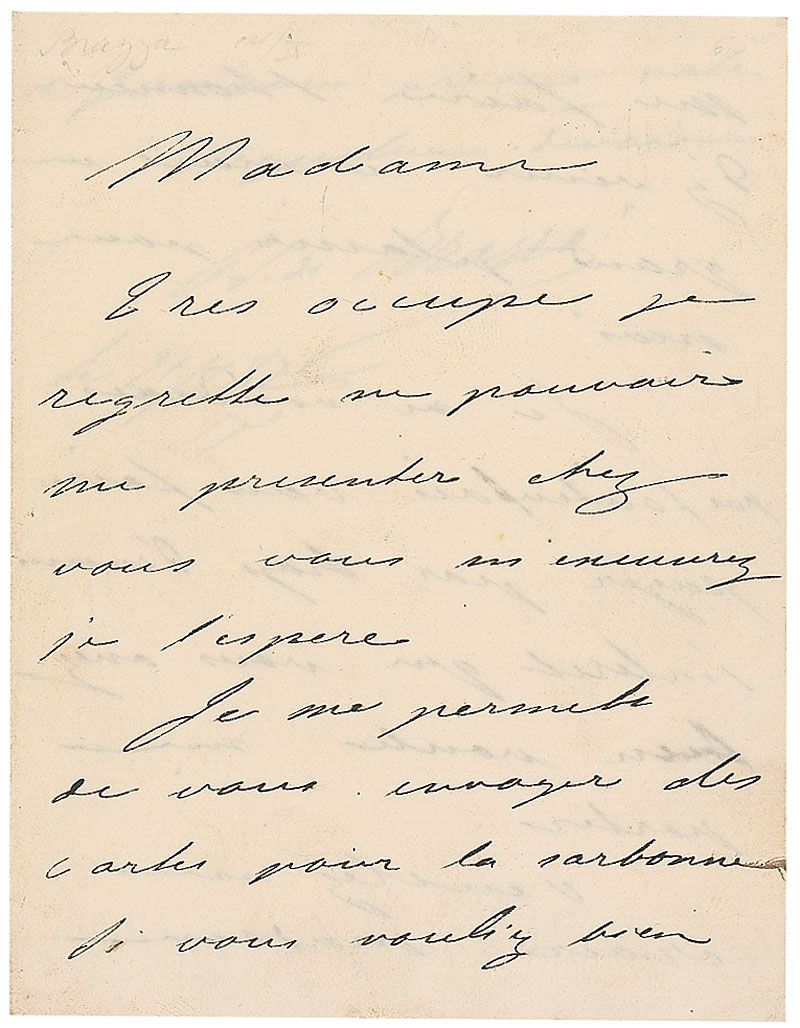 Brazza
Madame
Tres occupe je
regrette ne pouvoir
me presenter chez
vous vous m excuserez
je l espere
Je me permets
de vous envoyer des
cartes pour la sorbonne
Si vous vouliez bien